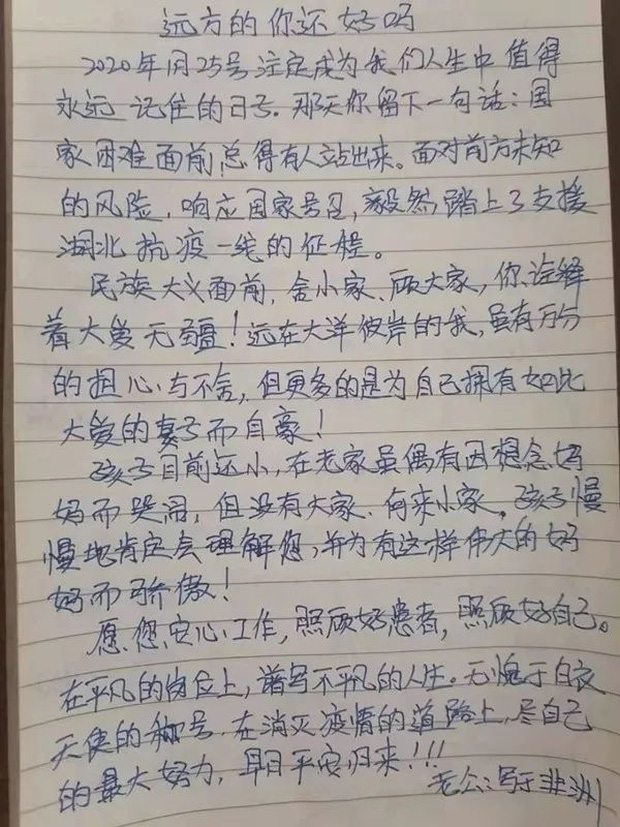 远方的你还好吗
2020年1月25号注定成为我们人生中值得
永远记住的日子.那天你留下一句话:国
家困难面前总得有人站出来。面对前方未知
的风险,响应国家号召,毅然踏上了支援
湖北抗疫一线的征程。
民族大义面前,舍小家、顾大家,你诠释
着大爱无疆!远在大洋彼岸的我,虽有万分
的担心与不舍,但更多的是为自己拥有如此
大爱的妻子而自豪!
孩子目前还小,在老家虽偶有因想念妈
妈而哭闹,但没有大家.何来小家。孩子慢
慢地肯定会理解您,并为有这样伟大的妈
妈而骄傲!
愿您安心工作,照顾好患者,照顾好自己。
在平凡的岗位上,谱写不平凡的人生。无愧于白衣
天使的称号.在消灭疫情的道路上,尽自己
的最大努力,早日平安归来!!!
老公:写于非洲